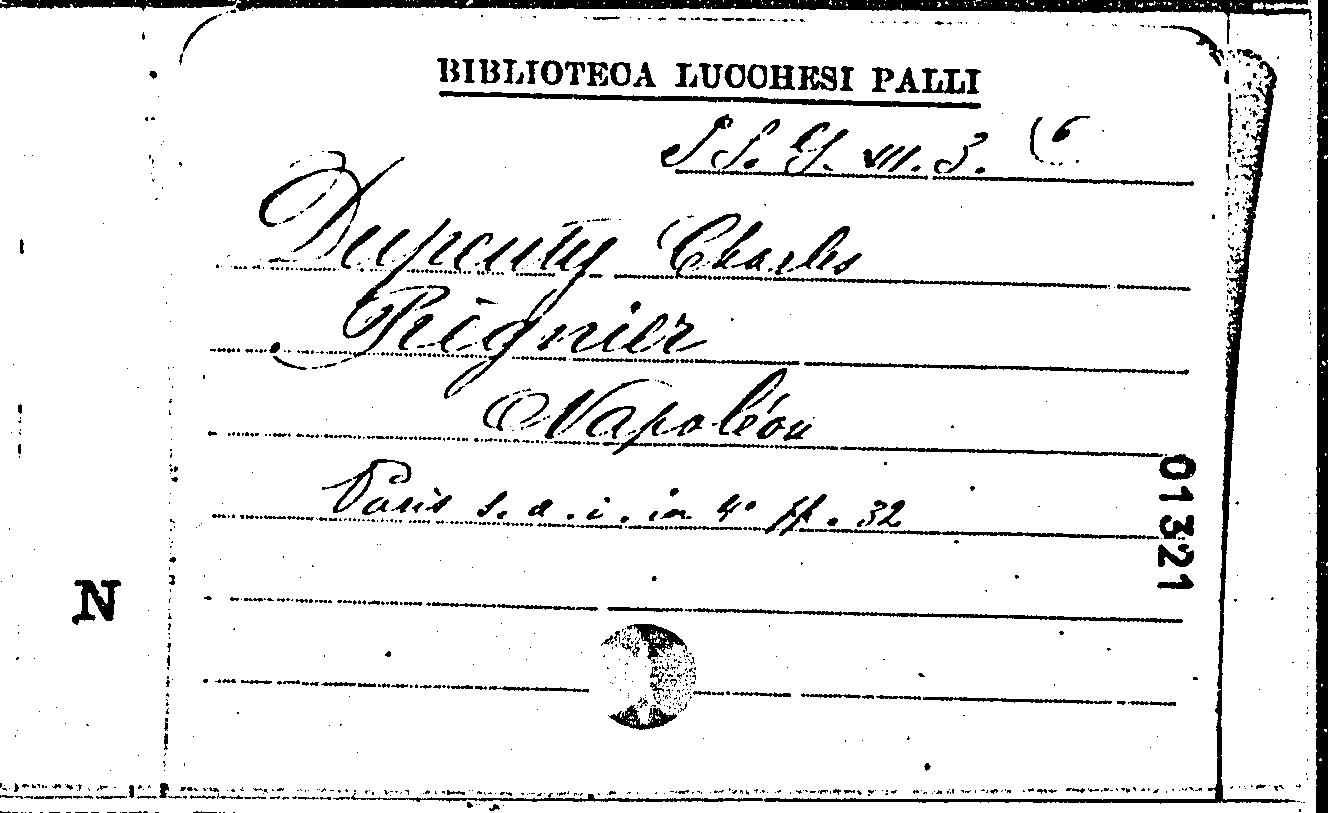 BIBLIOTECA LUCCHESI PALLI
S. G. VIII. 3. (6
Dupeuty Charles
Régnier
Napoléon
Paris s. a. i. in 4° ff. 32
01321
N